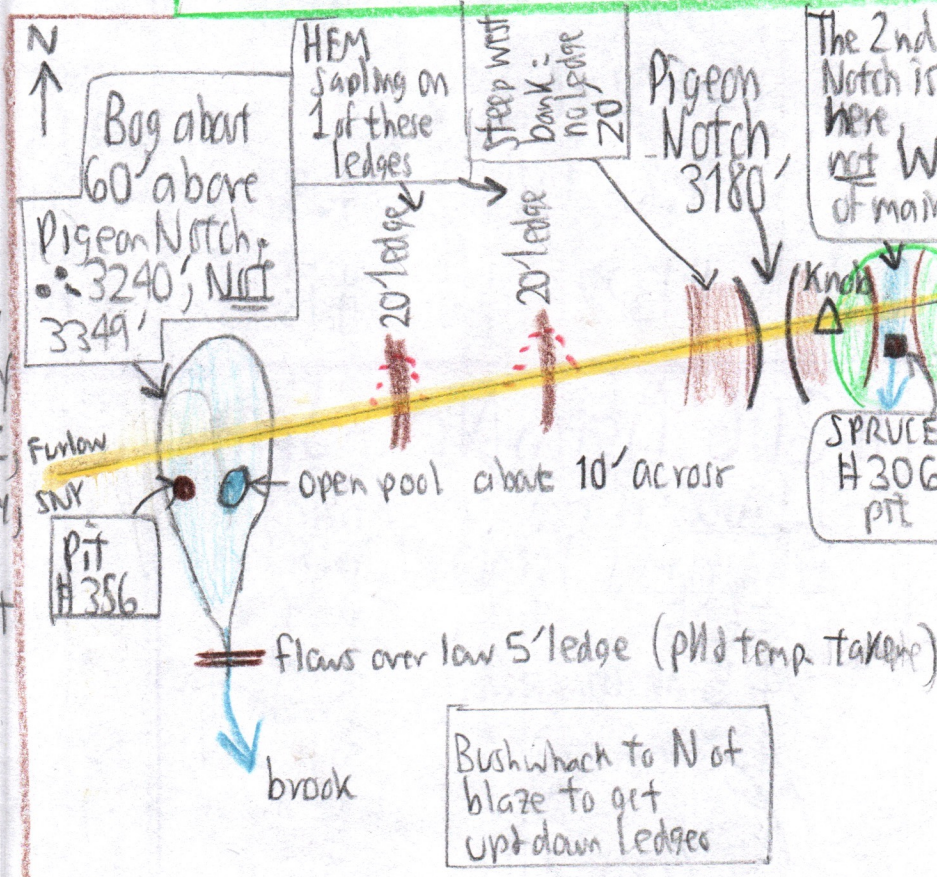 N
Bog about
60' above
Pigeon Notch,
∴ 3240', Not
3349'
HEM
Sapling on
1 of these
ledges
steep west
bank =
no ledge
20'
Pigeon
Notch
3180'
The 2nd
Notch is
here
not W
of main
20' ledge
20' ledge
Knob
Furlow
SNY
Pit
#356
open pool about 10' across
SPRUCE
#306
pit
flows over low 5' ledge (pH & temp. taken)
brook
Bushwhack to N of
blaze to get
up + down ledges